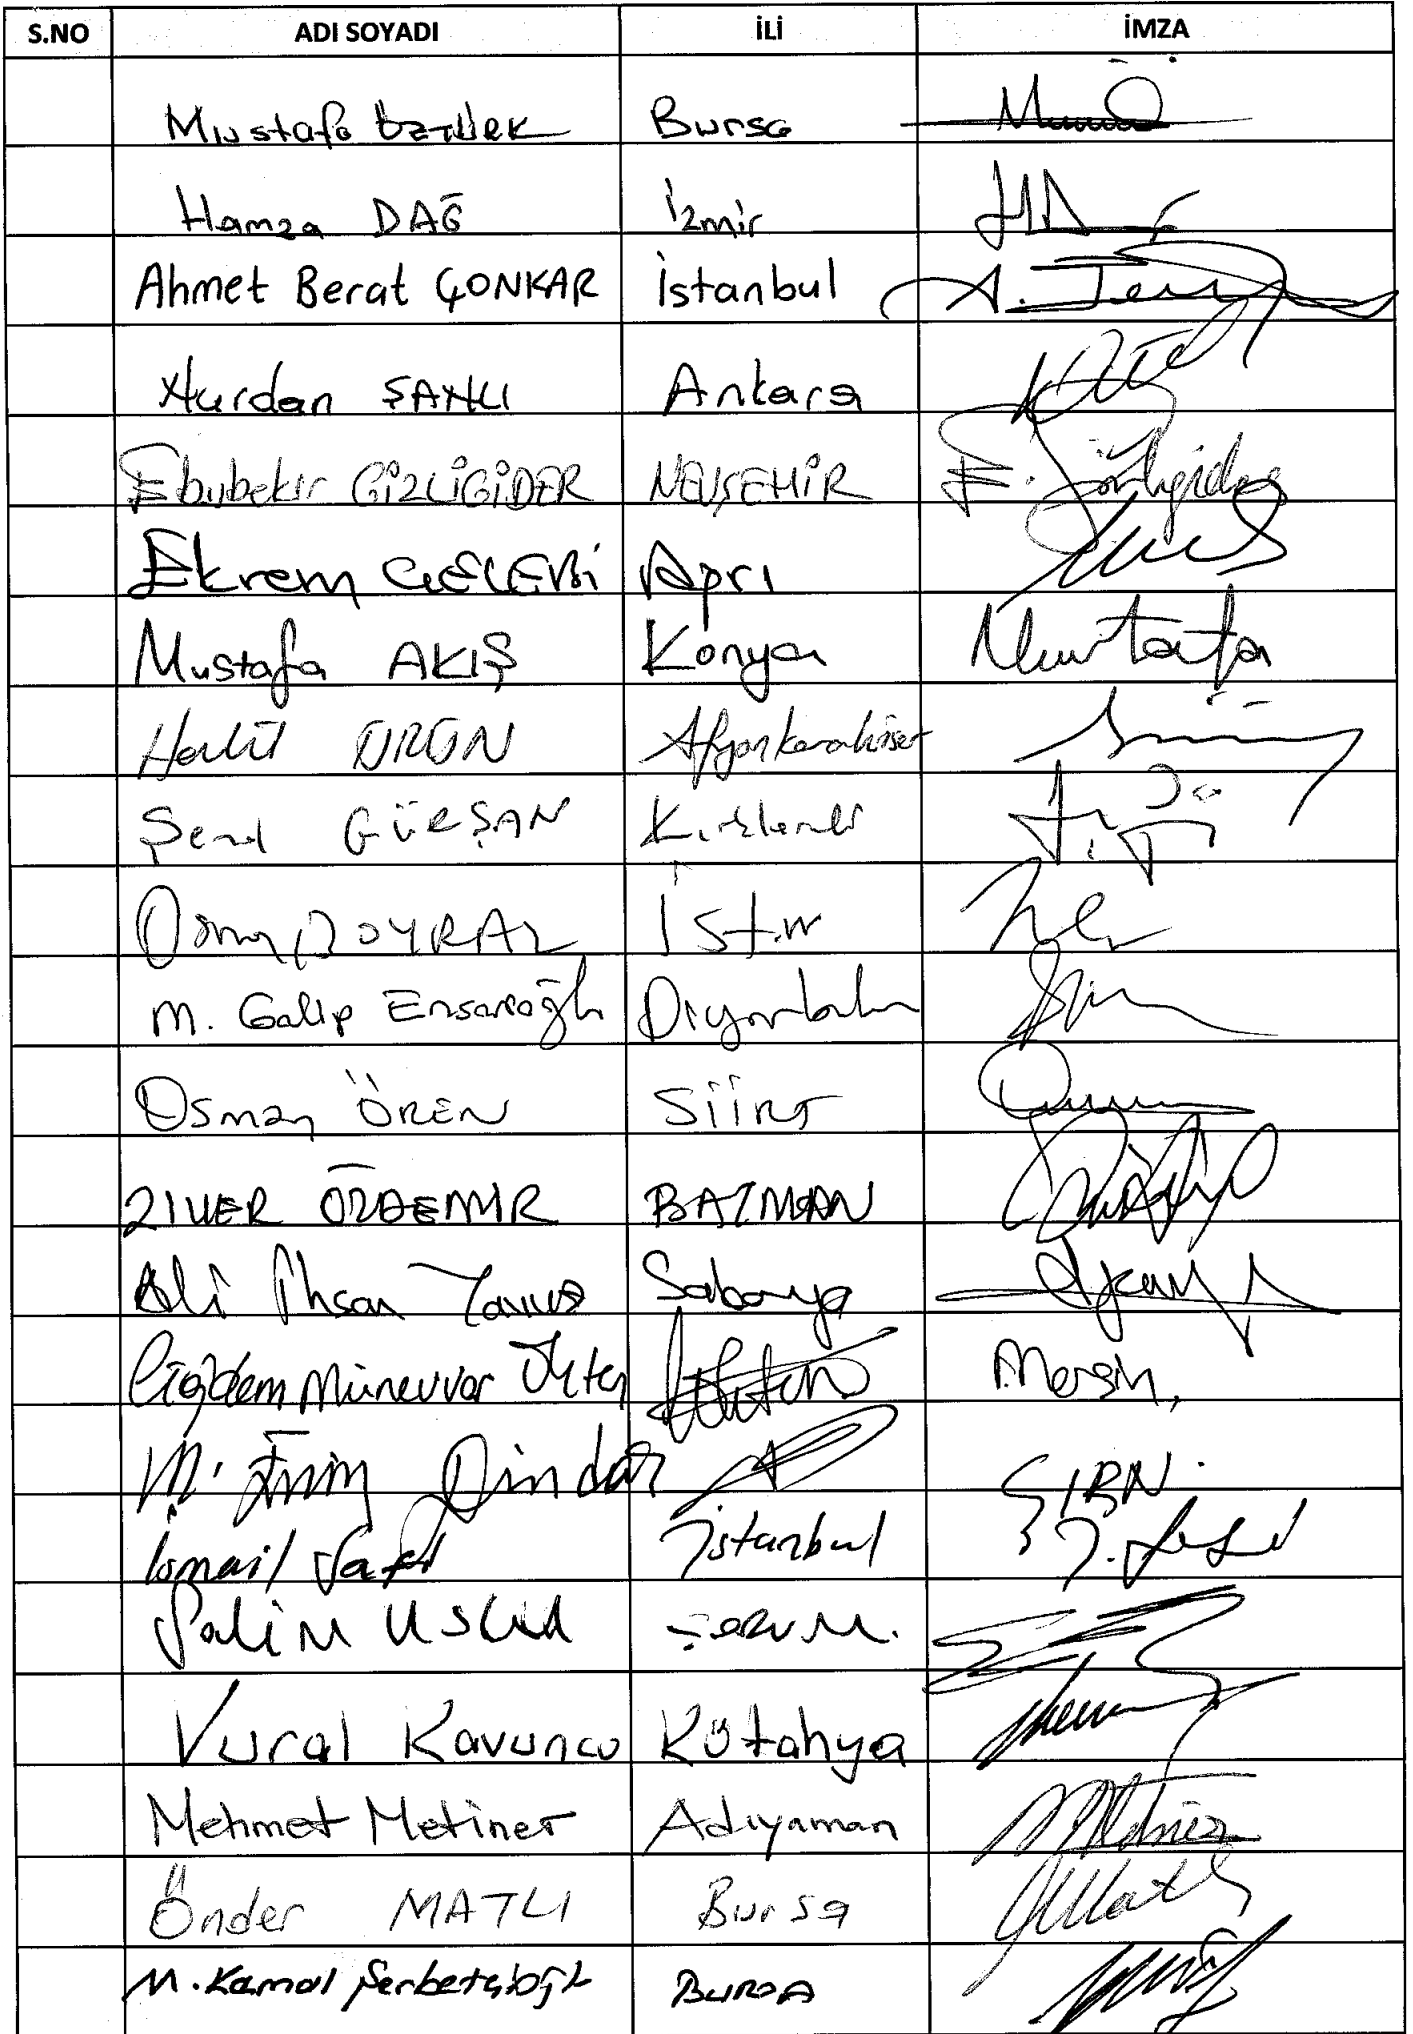 S.NO ADI SOYADI İLİ İMZA
Mustafa ÖZTÜRK Bursa
Hamza DAĞ İzmir
Ahmet Berat ÇONKAR İstanbul
Nurdan ŞANLI Ankara
Ebubekir GİZLİGİDER NEVŞEHİR E. Gizligider
Ekrem ÇELEBİ Ağrı
Mustafa AKIŞ Konya Mustafa
Halil ÜRÜN Afyonkarahisar
Şenol GÜRŞAN Kırklareli
Osman BOYRAZ İst
M. Galip Ensarioğlu Diyarbakır
Osman ÖREN SİİRT
ZİVER ÖZDEMİR BATMAN
Ali İhsan Yavuz Sakarya
Çiğdem Münevver Ökten Mersin,
M. Emin Dindar ŞIRN.
İsmail Safi İstanbul
Salim USLU ÇORUM.
Vural Kavuncu Kütahya
Mehmet Metiner Adıyaman
Önder MATLI Bursa
M. Kemal Şerbetçioğlu BURSA